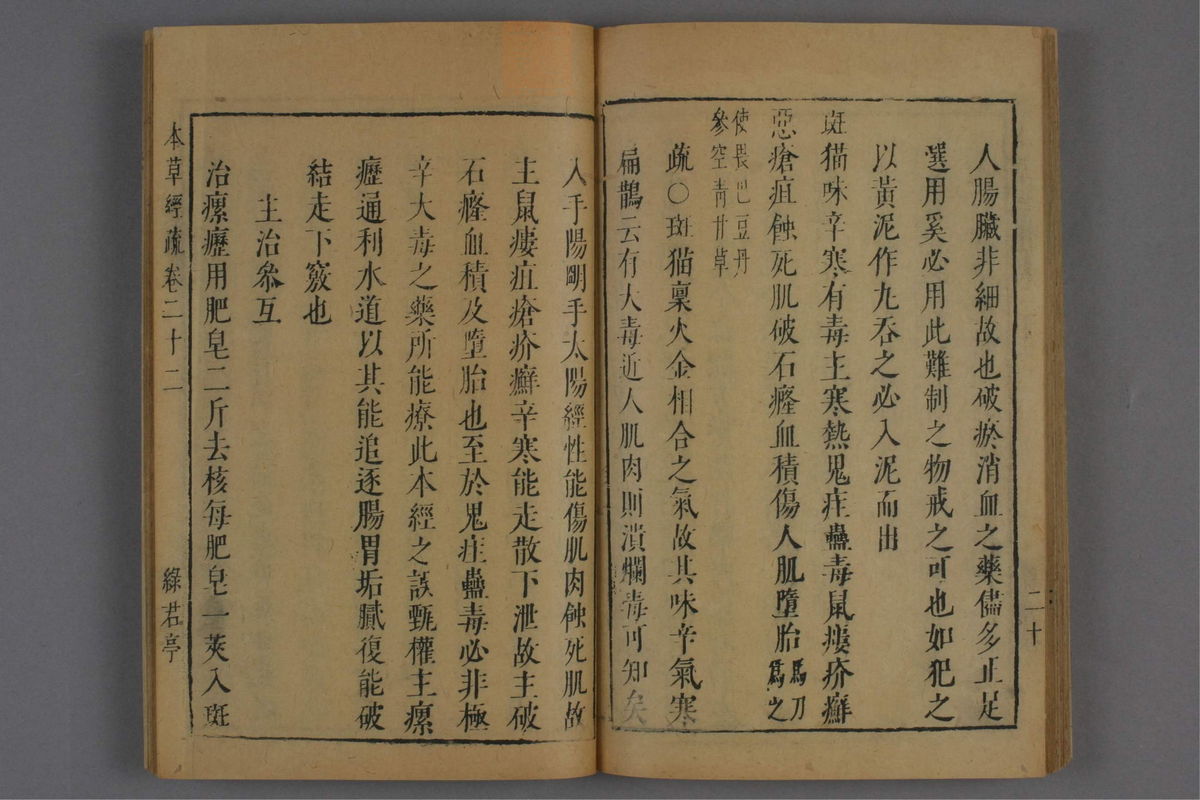 人腸臟非細故也破瘀消血之藥儘多正足
選用奚必用此難制之物戒之可也如犯之
以黃泥作九吞之必入泥而出
斑猫味辛寒有毒主寒熱鬼疰蠱毒鼠瘻疥癬
惡瘡疽蝕死肌破石癃血積傷人肌墮胎馬刀爲之
使畏巴豆丹參空青甘草
疏○斑猫稟火金相合之氣故其味辛氣寒
扁鵲云有大毒近人肌肉則潰爛毒可知矣
二十
入手陽明手太陽經性能傷肌肉蝕死肌故
主鼠瘻疽瘡疥癬辛寒能走散下泄故主破
石癃血積及墮胎也至於鬼疰蠱毒必非極
辛大毒之藥所能療此本經之誤甄權主瘰
癧通利水道以其能追逐腸胃垢膩復能破
結走下竅也
主治參互
治瘰癧用肥皂二斤去核每肥皂一莢入斑
本草經疏卷二十二
綠君亭